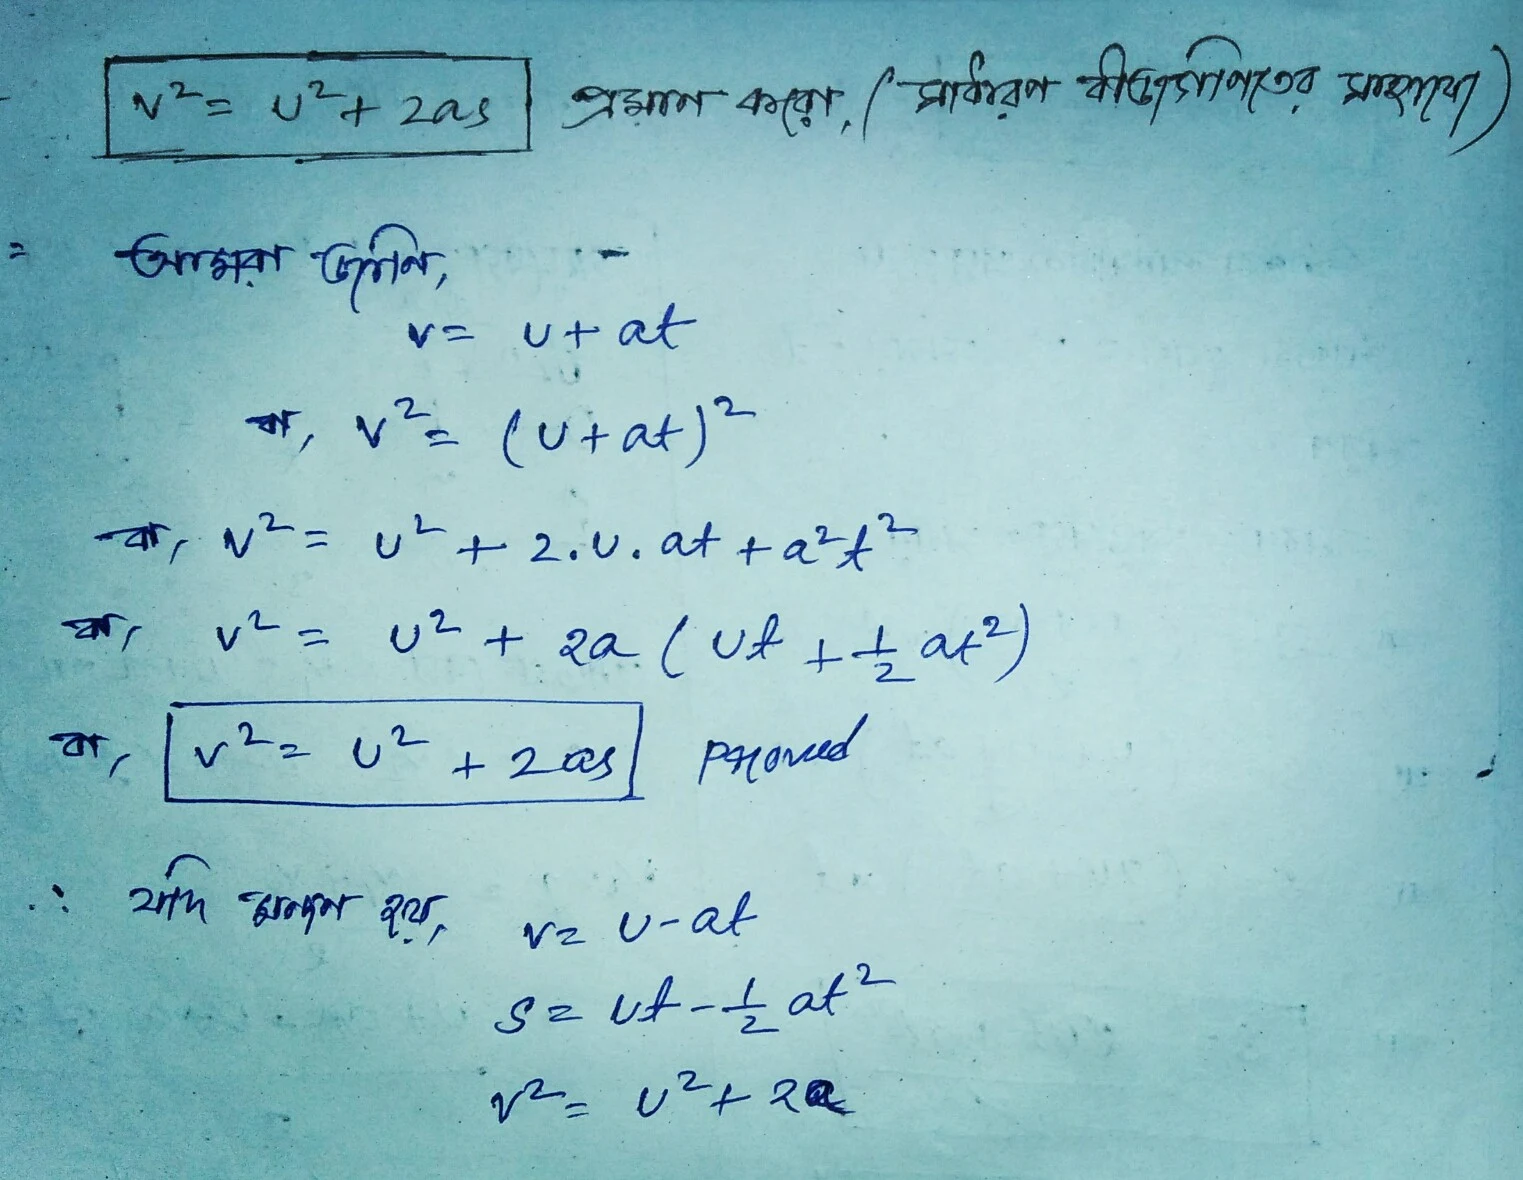 v² = u² + 2as প্রমাণ করো, (সাধারণ বীজগণিতের সাহায্যে)
= আমরা জানি, -
v = u + at
বা, v² = (u + at)²
বা, v² = u² + 2.u.at + a²t²
বা, v² = u² + 2a (ut + 1/2 at²)
বা, v² = u² + 2as proved
∴ যদি মন্দন হয়, v = u - at
s = ut - 1/2 at²
v² = u² + 2a